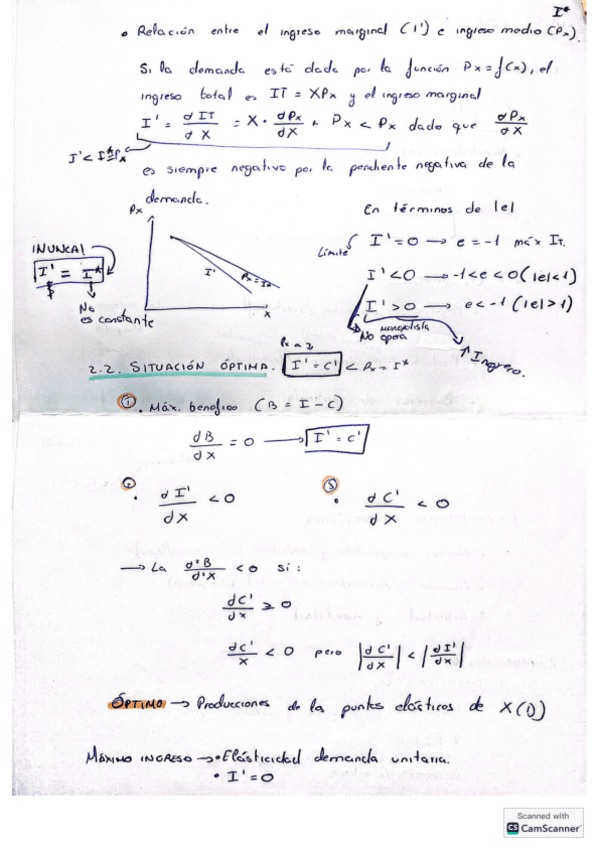 I*
• Relación entre el ingreso marginal (I') e ingreso medio (Px).
Si la demanda está dada por la función Px = f(x), el
ingreso total es IT = XPx y el ingreso marginal
I' = d IT / d X = X · dPx / dX + Px < Px dado que dPx / dX
I' < I*
es siempre negativo por la pendiente negativa de la
demanda.
Px
I'
Px = I*
X
¡NUNCA!
I' = I*
No
es constante
En términos de |e|
Límite
I' = 0 → e = -1 máx IT.
I' < 0 → -1 < e < 0 (|e| < 1)
I' > 0 → e < -1 (|e| > 1)
monopolista
No opera
↑ Ingreso.
2.2. SITUACIÓN ÓPTIMA. I' = C' < Px = I*
① • Máx. benefico (B = I - C)
dB / dx = 0 → I' = C'
② • d I' / dX < 0
③ • d C' / dX < 0
→ La d²B / d²X < 0 si:
dC' / dx ≥ 0
dC' / x < 0 pero |dC' / dX| < |dI' / dx|
ÓPTIMO → Producciones de los puntos elásticos de X(D)
MÁXIMO INGRESO → • Elásticidad demanda unitaria.
• I' = 0
Scanned with
CS CamScanner